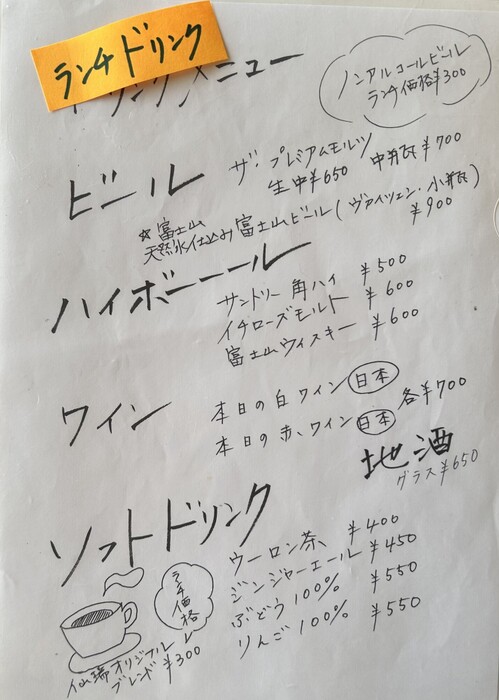 ランチドリンク
ドリンクメニュー
ノンアルコールビール
ランチ価格¥300
ビール
ザ・プレミアムモルツ
生中¥650 中瓶¥700
☆富士山
天然水仕込み富士山ビール(ヴァイツェン・小瓶)
¥900
ハイボーール
サントリー角ハイ ¥500
イチローズモルト ¥600
富士山ウィスキー ¥600
ワイン
本日の白ワイン 日本
本日の赤ワイン 日本
各¥700
地酒
グラス¥650
ソフトドリンク
ウーロン茶 ¥400
ジンジャーエール ¥450
ぶどう100% ¥550
りんご100% ¥550
ランチ価格
オリジナル
ブレンド ¥300